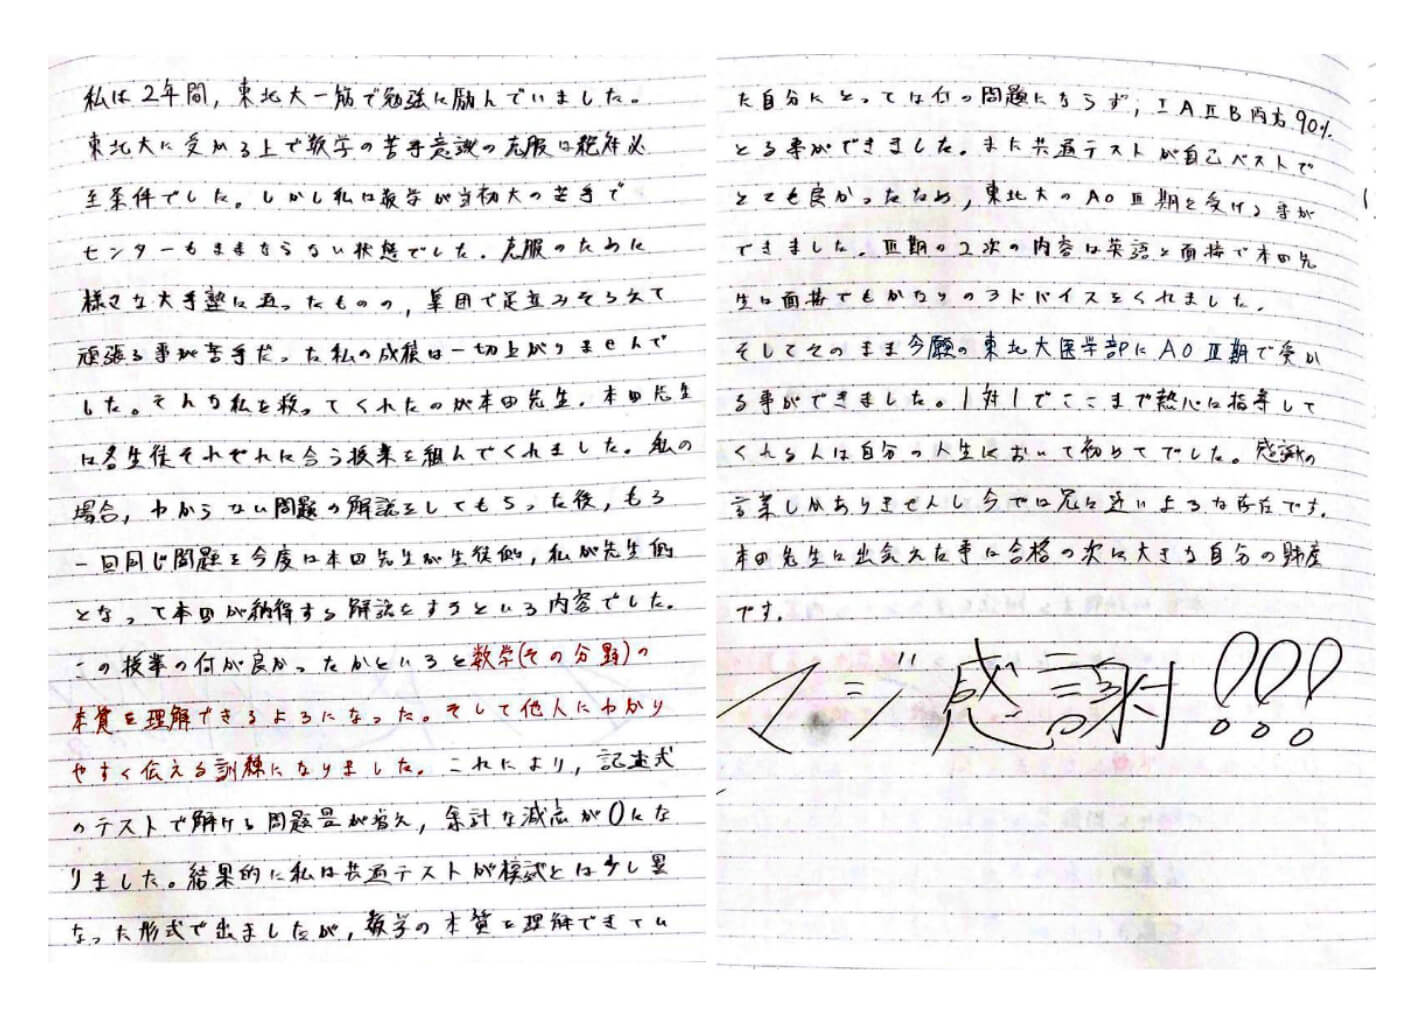 私は2年間，東北大一筋で勉強に励んでいました。
東北大に受かる上で数学の苦手意識の克服は絶対必
至条件でした。しかし私は数学が当初大の苦手で
センターもままならない状態でした．克服のために
様々な大手塾に通ったものの，集団で足並みそろえて
頑張る事が苦手だった私の成績は一切上がりませんで
した。そんな私を救ってくれたのが本田先生．本田先生
は各生徒それぞれに合う授業を組んでくれました。私の
場合，わからない問題の解説をしてもらった後，もう
一回同じ問題を今度は本田先生が生徒側，私が先生側
となって本田が納得する解説をするという内容でした．
この授業の何が良かったかというと数学(その分野)の
本質を理解できるようになった。そして他人にわかり
やすく伝える訓練になりました．これにより，記述式
のテストで解ける問題量が増え，余計な減点が0にな
りました。結果的に私は共通テストが模試とは少し異
なった形式で出ましたが，数学の本質を理解できてい
た自分にとっては何の問題にならず，ⅠAⅡB両方90%
とる事ができました。また共通テストが自己ベストで
とても良かったため，東北大のAOⅢ期を受ける事が
できました．Ⅲ期の2次の内容は英語と面接で本田先
生は面接でもかなりのアドバイスをくれました．
そしてそのまま念願の東北大医学部にAOⅢ期で受か
る事ができました。1対1でここまで熱心に指導して
くれる人は自分の人生において初めてでした。感謝の
言葉しかありませんし今では兄に近いような存在です．
本田先生に出会えた事は合格の次に大きな自分の財産
です．
マジ感謝!!!